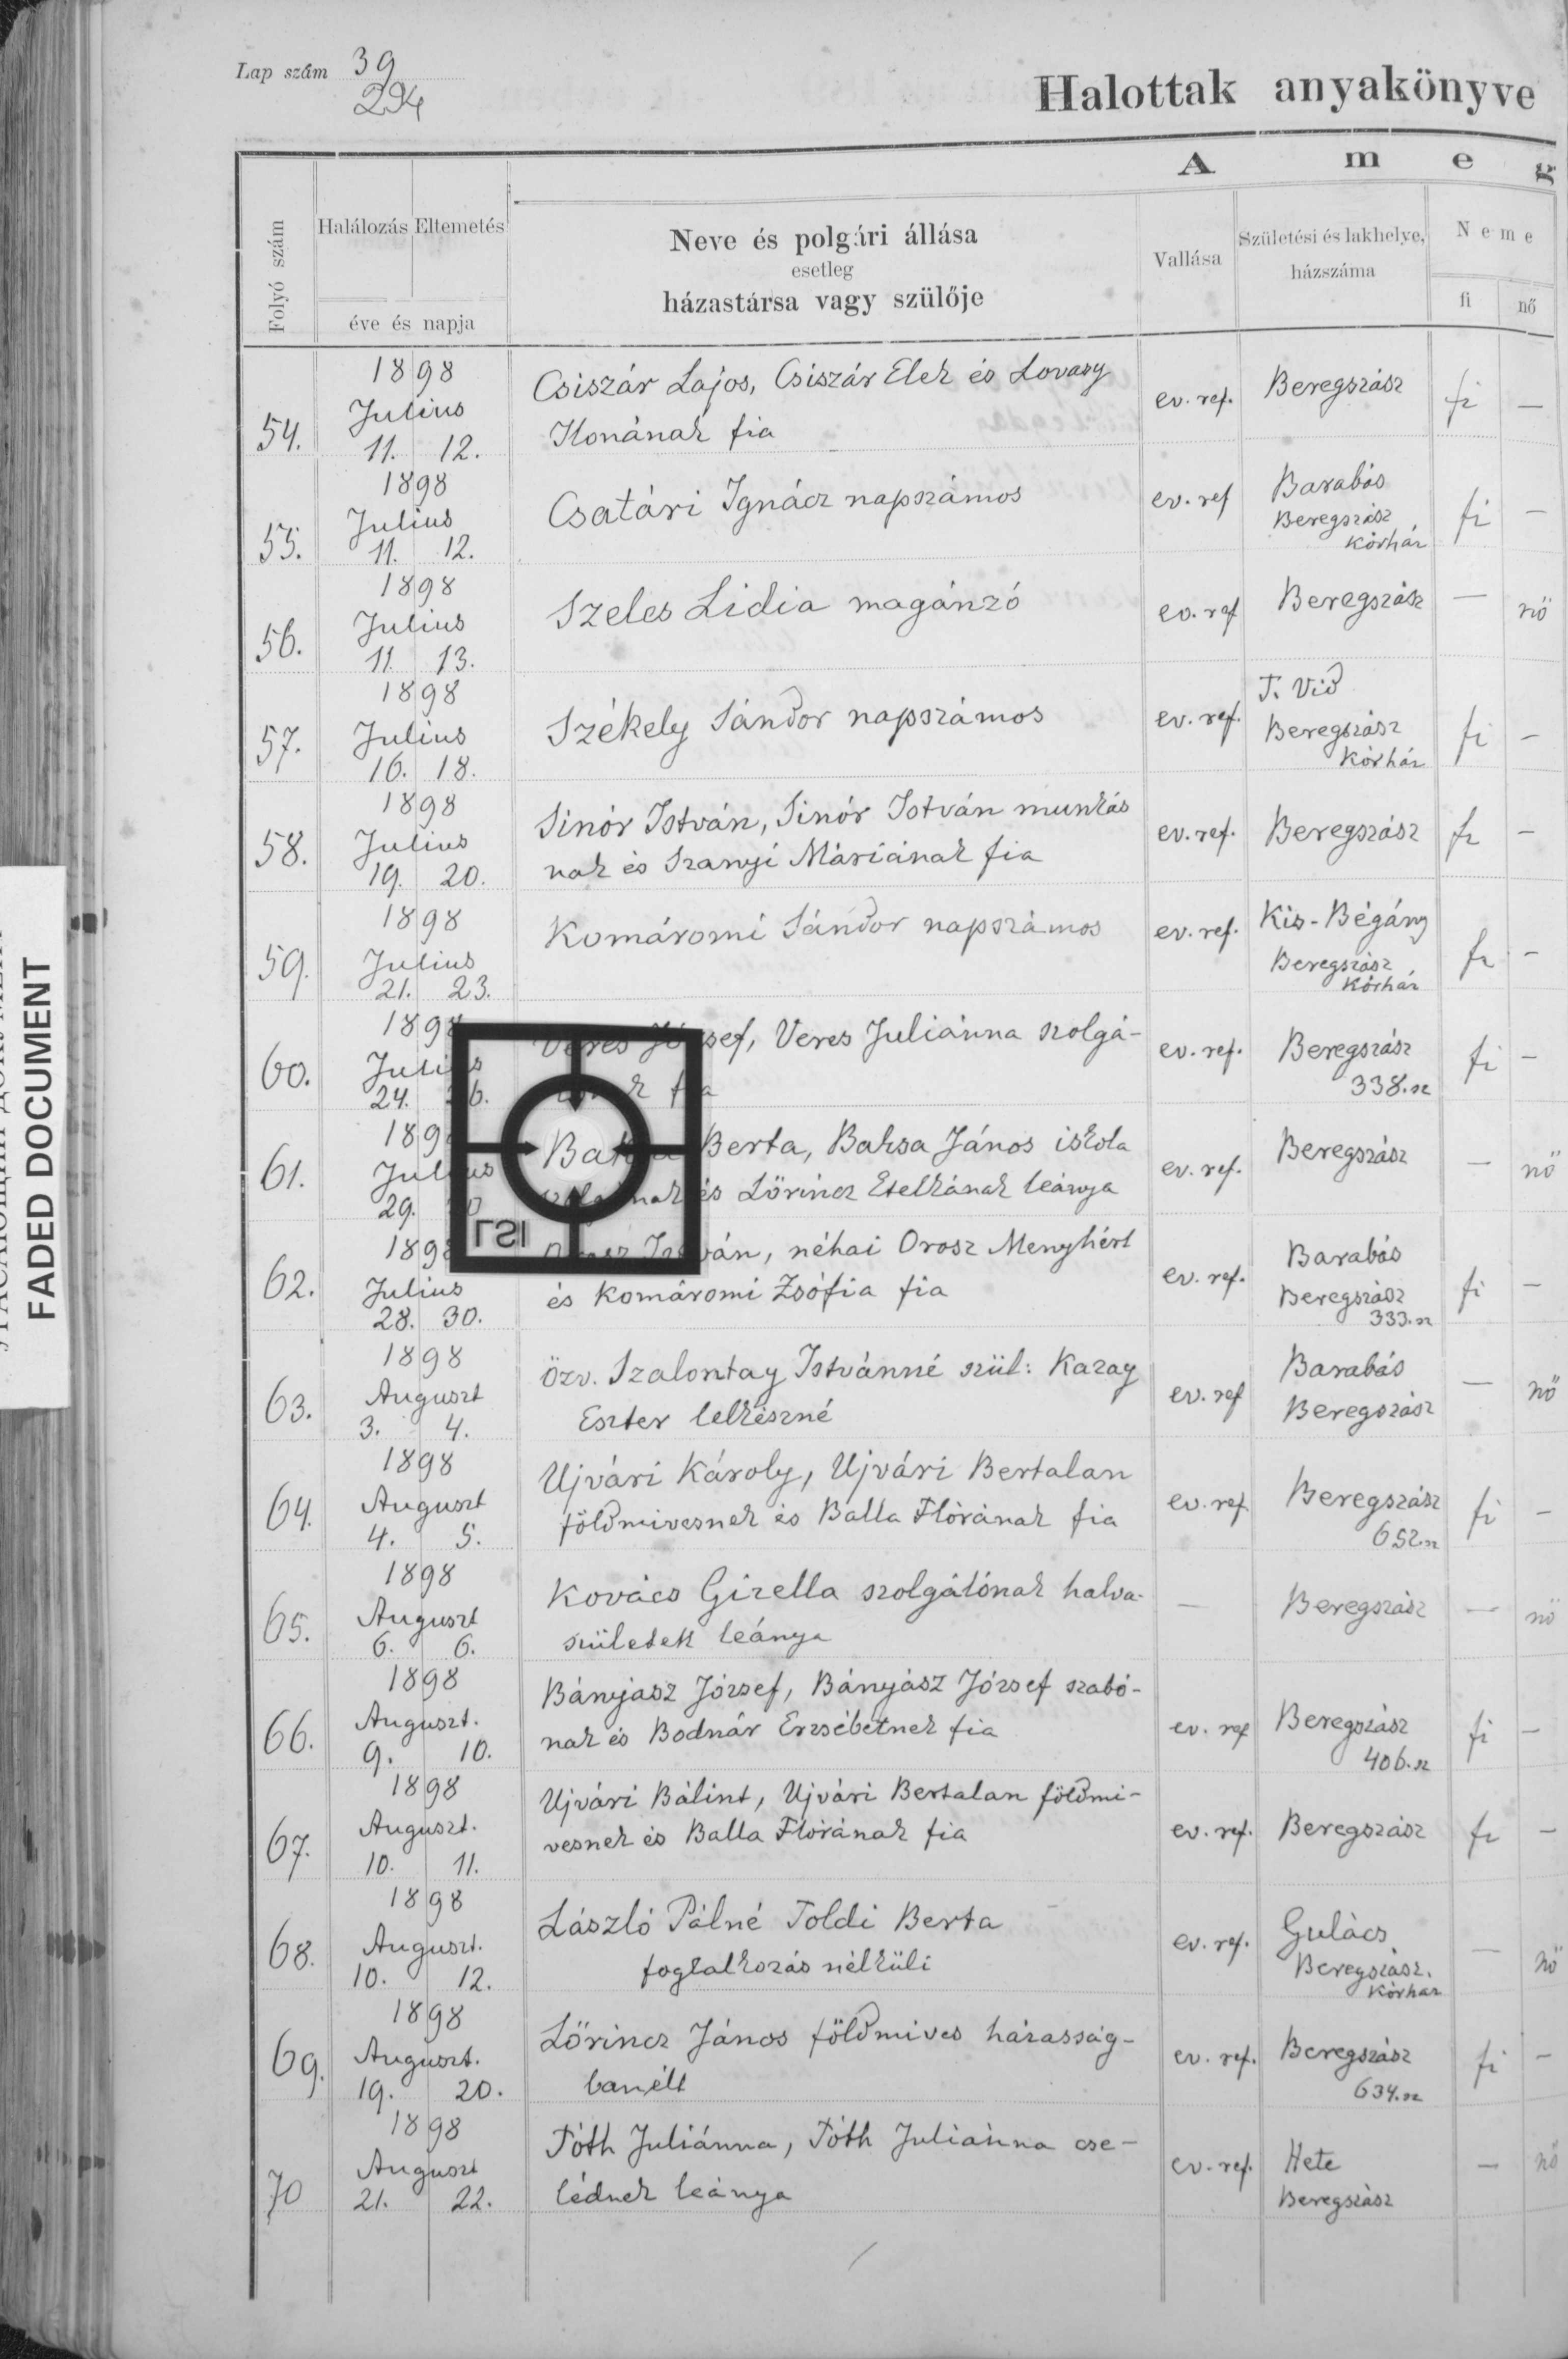 Lap szám 39
294
Halottak anyakönyve
A m e g
Folyó szám
Halálozás Eltemetés
éve és napja
Neve és polgári állása
esetleg
házastársa vagy szülője
Vallása
Születési és lakhelye,
házszáma
Neme
fi nő
1898
54. Julius
11. 12.
Csiszár Lajos, Csiszár Elek és Lovasy
Ilonának fia
ev. ref. Beregszász fi —
1898
55. Julius
11. 12.
Csatári Ignácz napszámos
ev. ref Barabás
Beregszász
Kórház
fi —
1898
56. Julius
11 13.
Szeles Lidia magánzó
ev. ref Beregszász — nő
1898
57. Julius
16. 18.
Székely Sándor napszámos
ev. ref. T. Vid
Beregszász
Kórház
fi —
1898
58. Julius
19. 20.
Sinór István, Sinór István munkás
nak és Szanyi Máriának fia
ev. ref. Beregszász fi —
1898
59. Julius
21. 23.
Komáromi Sándor napszámos
ev. ref. Kis-Bégány
Beregszász
Kórház
fi —
1898
60. Julius
24. 26.
Veres József, Veres Juliánna szolgá-
fia
ev. ref. Beregszász
338. sz
fi —
189
61. Julius
29.
Baksa Berta, Baksa János iskola
és Lőrincz Etelkának leánya
ev. ref. Beregszász — nő
1898
62. Julius
28. 30.
Orosz István, néhai Orosz Menyhért
és Komáromi Zsófia fia
ev. ref. Barabás
Beregszász
333. sz
fi —
1898
63. Auguszt
3. 4.
özv. Szalontay Istvánné szül: Kazay
Eszter lelkészné
ev. ref Barabás
Beregszász
— nő
1898
64. Auguszt
4. 5.
Ujvári Károly, Ujvári Bertalan
földmivesnek és Balla Flórának fia
ev. ref. Beregszász
652. sz
fi —
1898
65. Auguszt
6. 6.
Kovács Gizella szolgálónak halva-
született leánya
— Beregszász — nő
1898
66. Auguszt.
9. 10.
Bányász József, Bányász József szabó-
nak és Bodnár Erzsébetnek fia
ev. ref Beregszász
406. sz
fi —
1898
67. Auguszt.
10. 11.
Ujvári Bálint, Ujvári Bertalan földmi-
vesnek és Balla Flórának fia
ev. ref. Beregszász fi —
1898
68. Auguszt.
10. 12.
László Pálné Toldi Berta
foglalkozás nélküli
ev. ref. Gulács
Beregszász.
Kórház
— nő
1898
69. Auguszt.
19. 20.
Lőrincz János földmives házasság-
ban élt
ev. ref. Beregszász
634. sz
fi —
1898
70 Auguszt
21. 22.
Tóth Juliánna, Tóth Juliánna cse-
lédnek leánya
ev. ref. Hete
Beregszász
— nő
FADED DOCUMENT
LSI